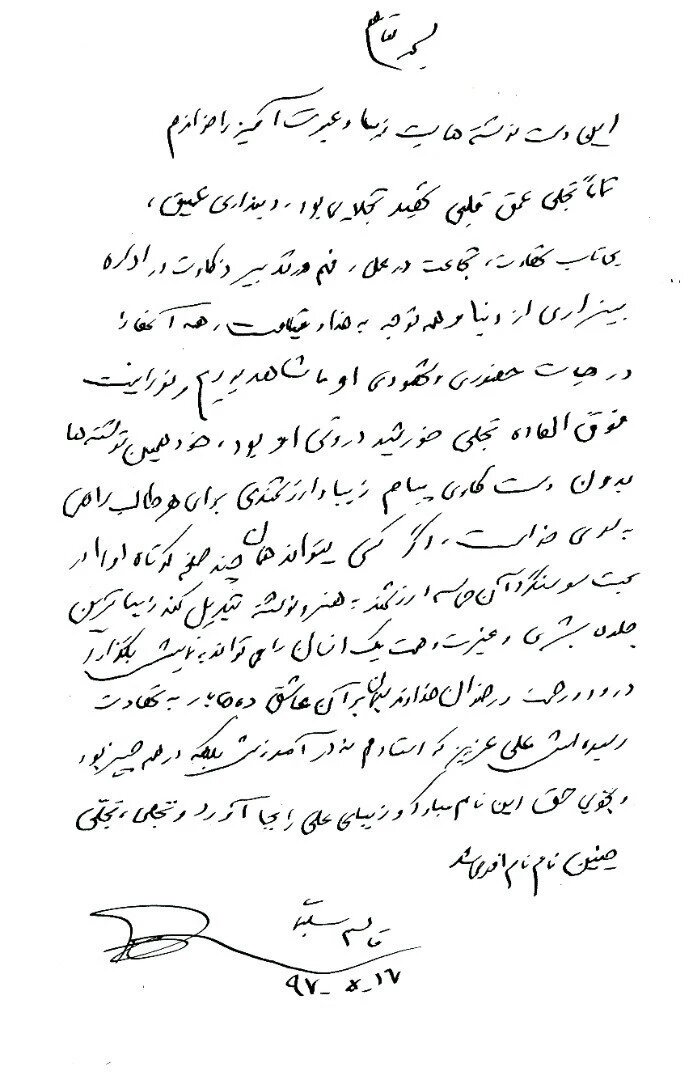 بسمه تعالی
این دست نوشته هایت زیبا و عبرت آمیز را خواندم
تماماً تجلی عمق قلبی شهید تجلایی بود. دینداری عمیق،
بی‌تاب شهادت، شجاعت در عمل، فهم در تدبیر ذکاوت در اداره
بیزاری از دنیا و همه توجه به خدا و قیامت، همه آنها را
در حیات حضوری و شهودی او ما شاهد بودیم
فوق العاده تجلی خورشید درونی او بود، خود همین نوشته‌ها
بدون دست کاری پیام زیبا و ارزشمندی برای هر طالب راهی
به سوی خداست، اگر کسی بتواند همان چند صفحه کوتاه او را در
آن حماسه ارزشمند به هنر و نوشته تبدیل کند زیباترین
جلوه بشری و غیرت و همت یک انسان را می تواند به نمایش بگذارد
درود و رحمت و رضوان خداوند بر آن عاشق به شهادت
رسیده علی عزیز که استادم نه در آموزش بلکه در همه چیز بود
و بخوبی حق این نام مبارک و زیبای علی را بجا آورد و تجلی، تجلّی
چنین نام
قاسم سلیمانی
۹۷-۸-۱۶